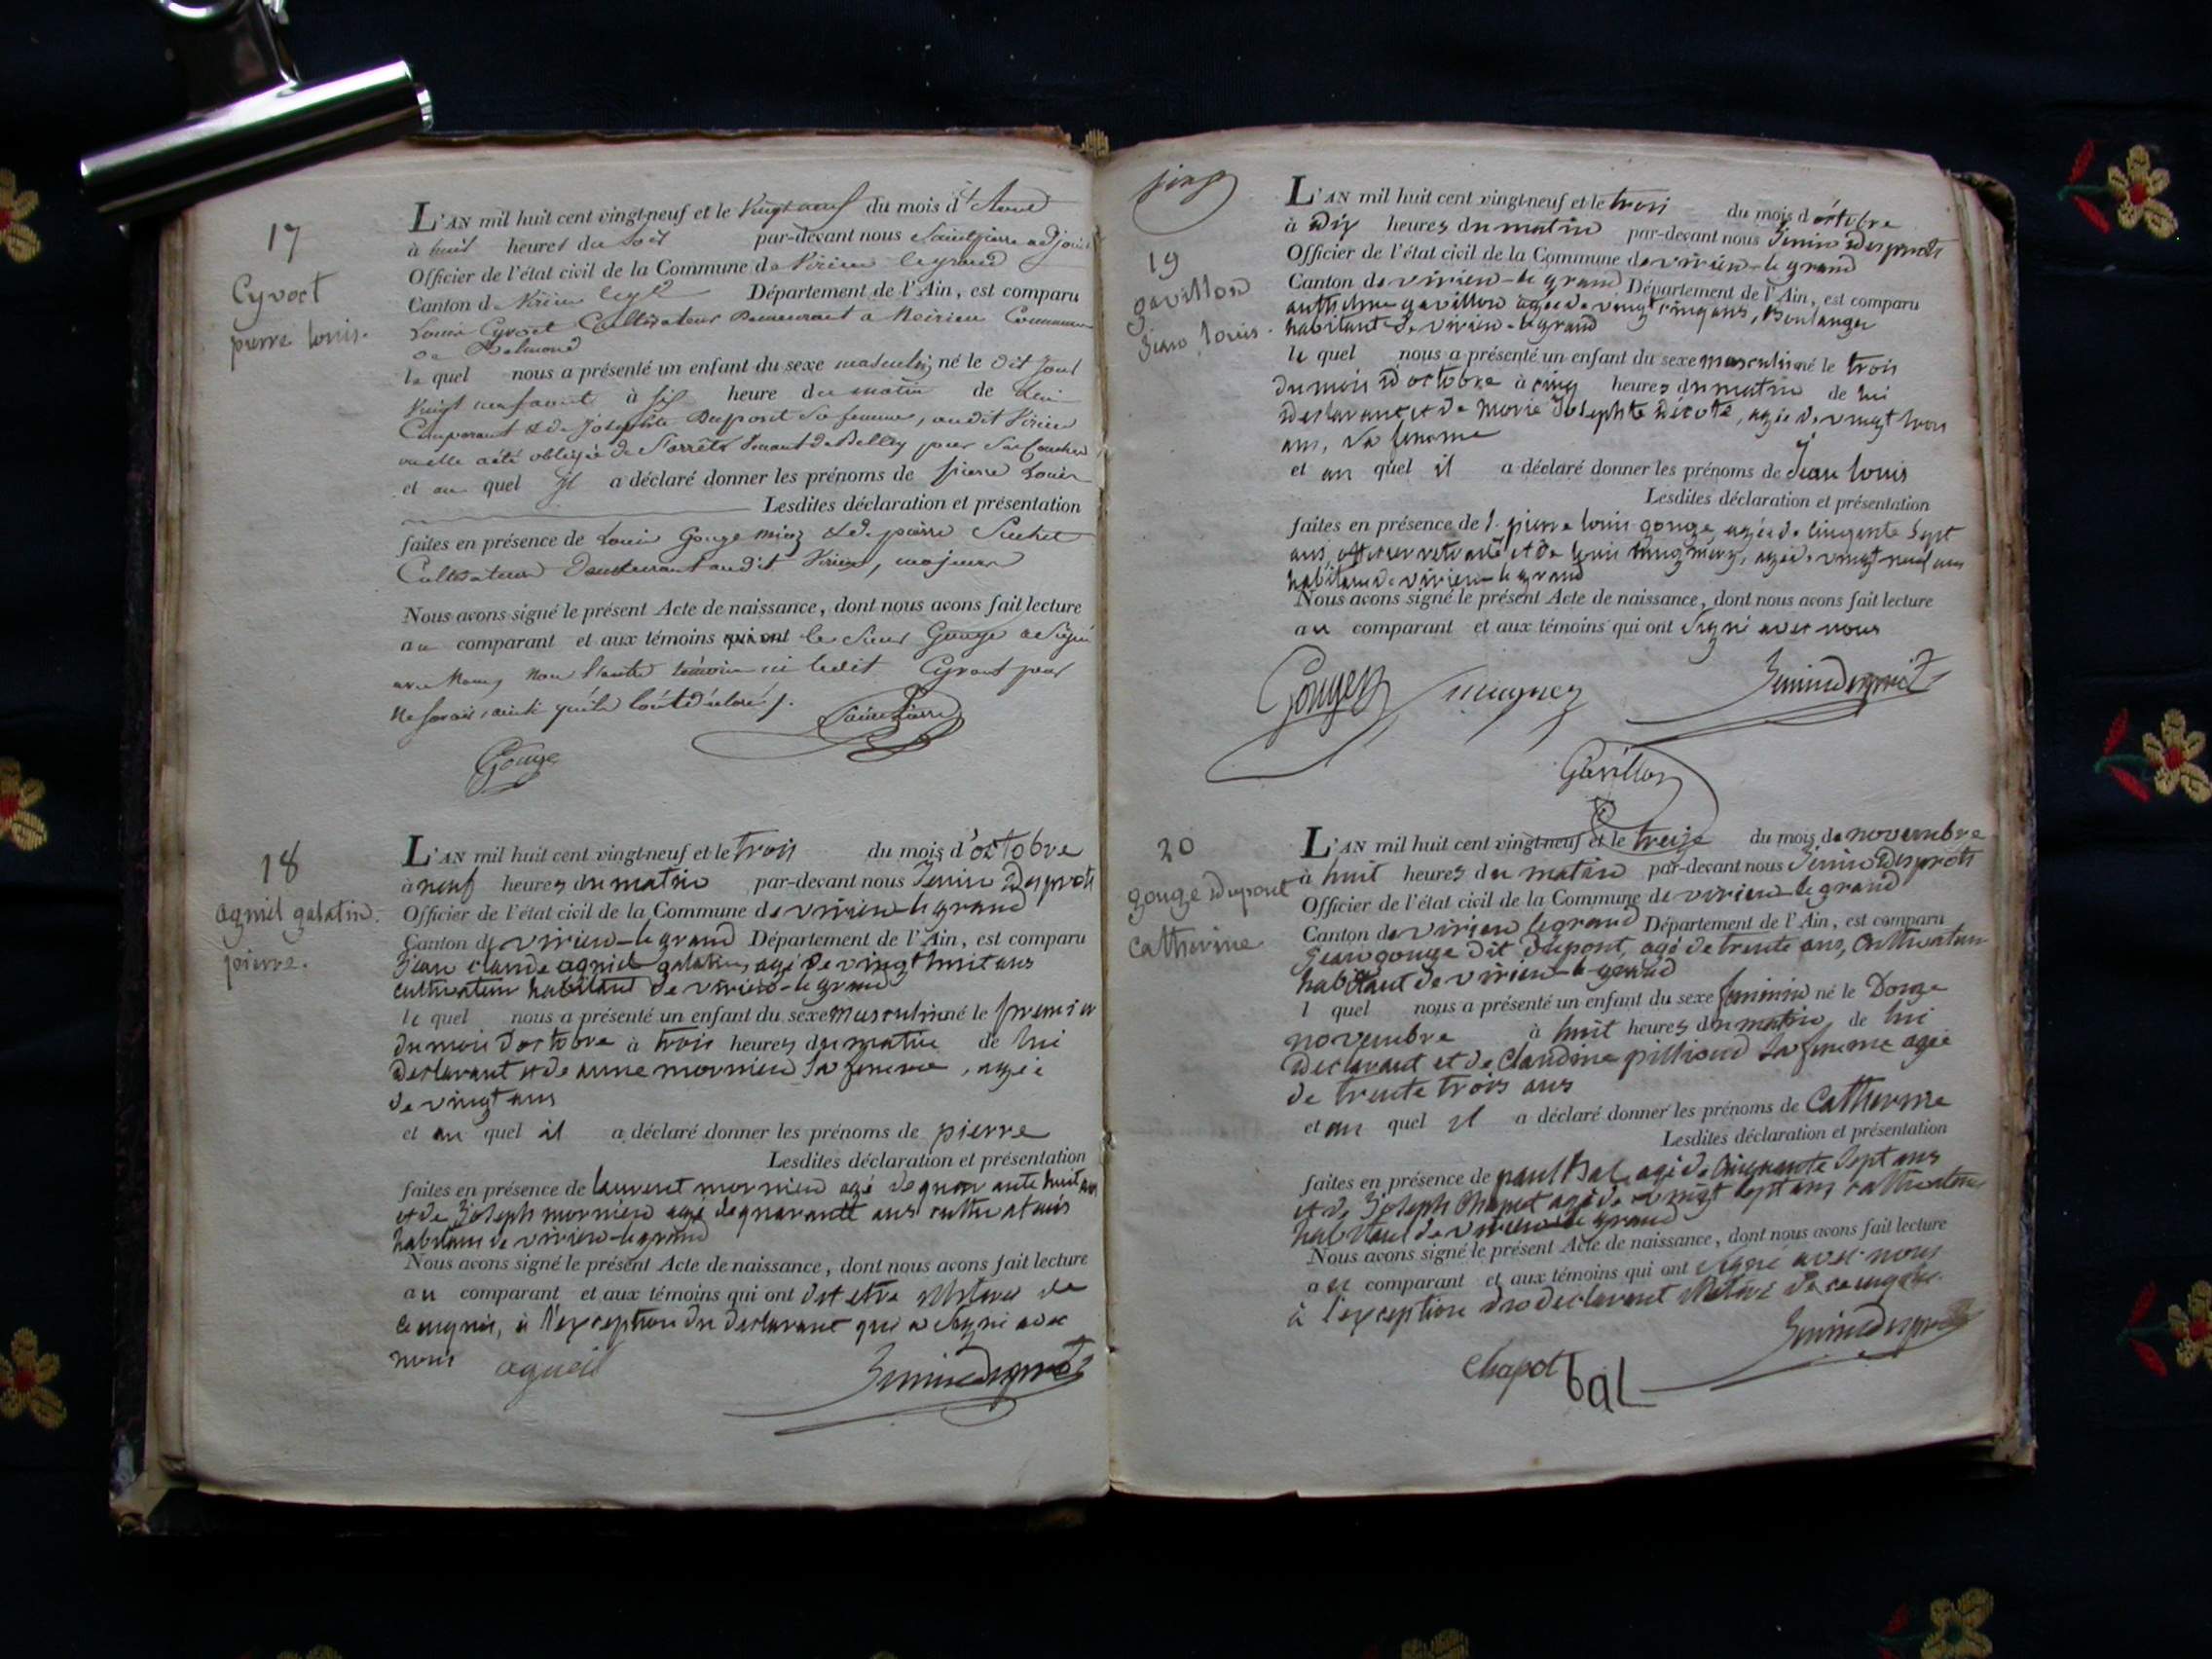 17
Cyvoct
pierre louis.
L'AN mil huit cent vingt-neuf et le Vingt neuf du mois d'
à huit heures du soir par-devant nous Saintpierre adjoint
Officier de l'état civil de la Commune de Virieu le grand
Canton de Virieu Département de l'Ain, est comparu
Louis Cyvoct Cultivateur Demeurant a Commune
de Belmond
le quel nous a présenté un enfant du sexe masculin né le dit jour
Vingt à six heure du matin de lui
Comparant & de Josephte Dupont Sa femme, audit Virieu
ou elle a été obligée de Sarrêter Venant de Belley pour Sa Couches
et au quel Il a déclaré donner les prénoms de pierre Louis
Lesdites déclaration et présentation
faites en présence de Louis Gouge & de pierre
Cultivateurs Demeurant audit Virieu, majeurs
Nous avons signé le présent Acte de naissance, dont nous avons fait lecture
au comparant et aux témoins qui ont le Sieur Gouge a Signé
avec Nous Non l'autre témoin ni ledit Cyvoct pour
ne savoir, ainsi qu'ils l'ont déclaré.
Saintpierre
Gouge
18
agniel galatin.
pierre.
L'AN mil huit cent vingt-neuf et le trois du mois d'octobre
à neuf heures du matin par-devant nous Jenin Desprots
Officier de l'état civil de la Commune de virieu-le grand
Canton de virieu-le grand Département de l'Ain, est comparu
Jean claude agniel galatin, agé de vingt huit ans
cultivateur habitant de virieu-le grand
le quel nous a présenté un enfant du sexe masculin né le premier
du mois d'octobre à trois heures du matin de lui
declarant et de anne mornieu sa femme, agée
de vingt ans
et au quel il a déclaré donner les prénoms de pierre
Lesdites déclaration et présentation
faites en présence de laurent mornieu agé de quarante huit ans
et de Joseph mornieu agé de quarante ans cultivateurs
habitans de virieu-le grand
Nous avons signé le présent Acte de naissance, dont nous avons fait lecture
au comparant et aux témoins qui ont dit etre illiteres de
ce enquis, à l'exception du declarant qui a signé avec
nous
19
gavillon
Jean louis.
L'AN mil huit cent vingt-neuf et le trois du mois d'octobre
à Dix heures du matin par-devant nous Jenin Desprots
Officier de l'état civil de la Commune de virieu-le grand
Canton de virieu-le grand Département de l'Ain, est comparu
anthelme gavillon agée de vingt cinq ans, Boulanger
habitant de virieu-le grand
le quel nous a présenté un enfant du sexe masculin né le trois
du mois d'octobre à cinq heures du matin de lui
declarant et de Marie Josephte agée de vingt trois
ans, sa femme
et au quel il a déclaré donner les prénoms de Jean louis
Lesdites déclaration et présentation
faites en présence de pierre louis gouge agée de cinquante Sept
ans, officier retraité et de louis agé de vingt neuf ans
habitans de virieu-le grand
Nous avons signé le présent Acte de naissance, dont nous avons fait lecture
au comparant et aux témoins qui ont signé avec nous
Gavillon
20
gouge Dupont
Catherine
L'AN mil huit cent vingt-neuf et le treize du mois de novembre
à huit heures du matin par-devant nous Jenin Desprots
Officier de l'état civil de la Commune de virieu-le grand
Canton de virieu le grand Département de l'Ain, est comparu
Jean gouge dit Dupont, agé de trente ans, Cultivateur
habitant de virieu-le grand
l quel nous a présenté un enfant du sexe feminin né le Douze
novembre à huit heures du matin de lui
Declarant et de Claudine pillioud sa femme agée
de trente trois ans
et au quel il a déclaré donner les prénoms de Catherine
Lesdites déclaration et présentation
faites en présence de paul Bal, agé de Cinquante Sept ans
et de Joseph Chapot agé de vingt Sept ans cultivateurs
habitant de virieu le grand
Nous avons signé le présent Acte de naissance, dont nous avons fait lecture
au comparant et aux témoins qui ont signé avec nous
à l'exception du declarant illitéré de ce enquis.
chapot
bal